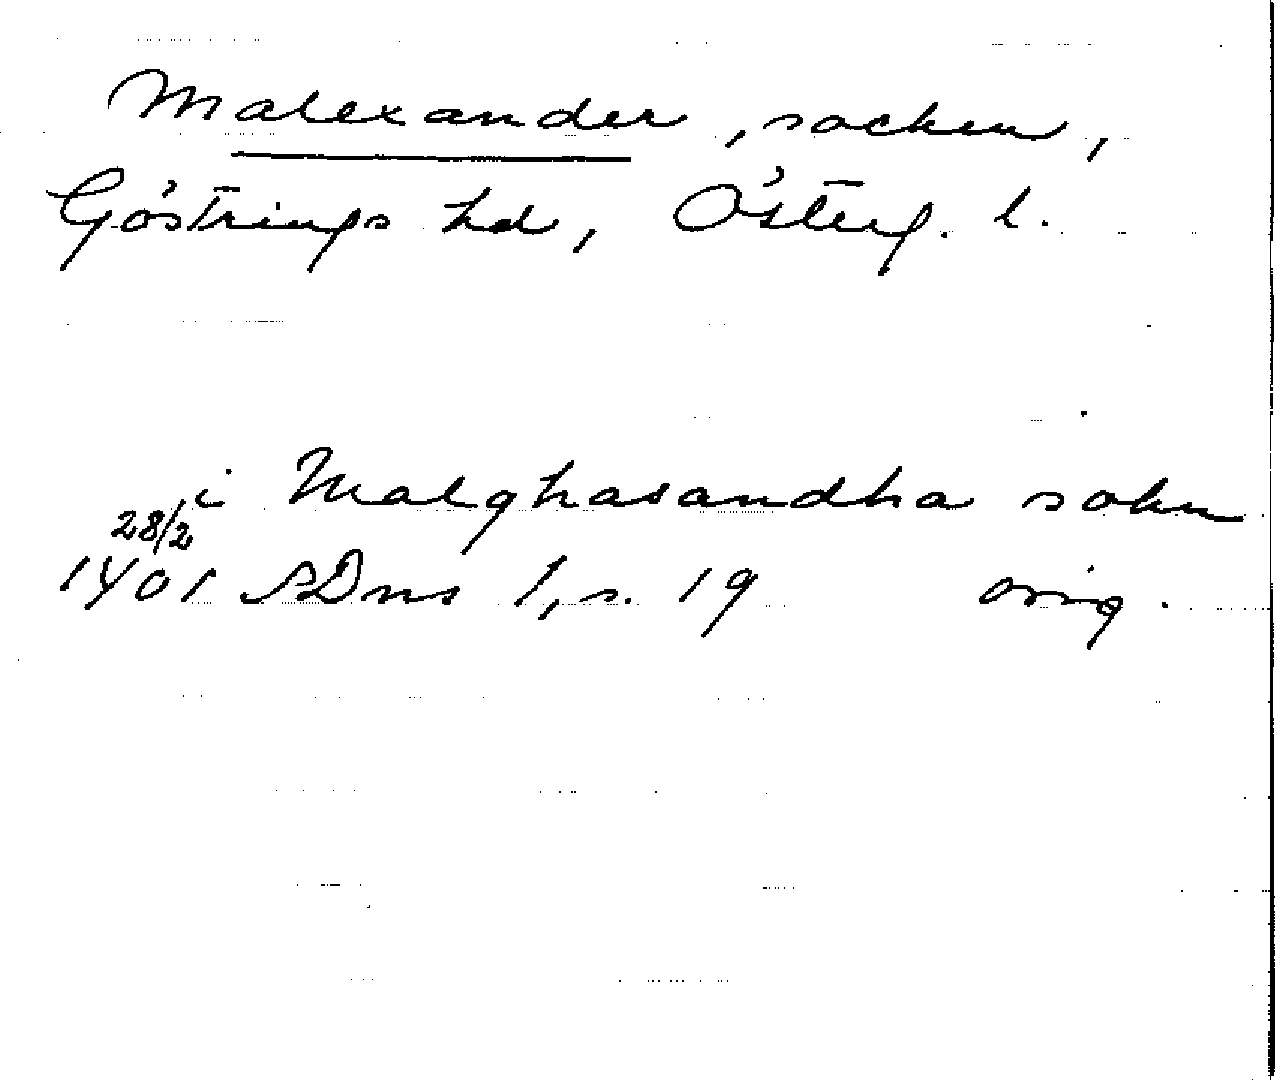 Malexander, socken,
Göstrings hd, Österg. l.
i Malghasandha sokn
28/2
1401 SDns 1, s. 19 orig.